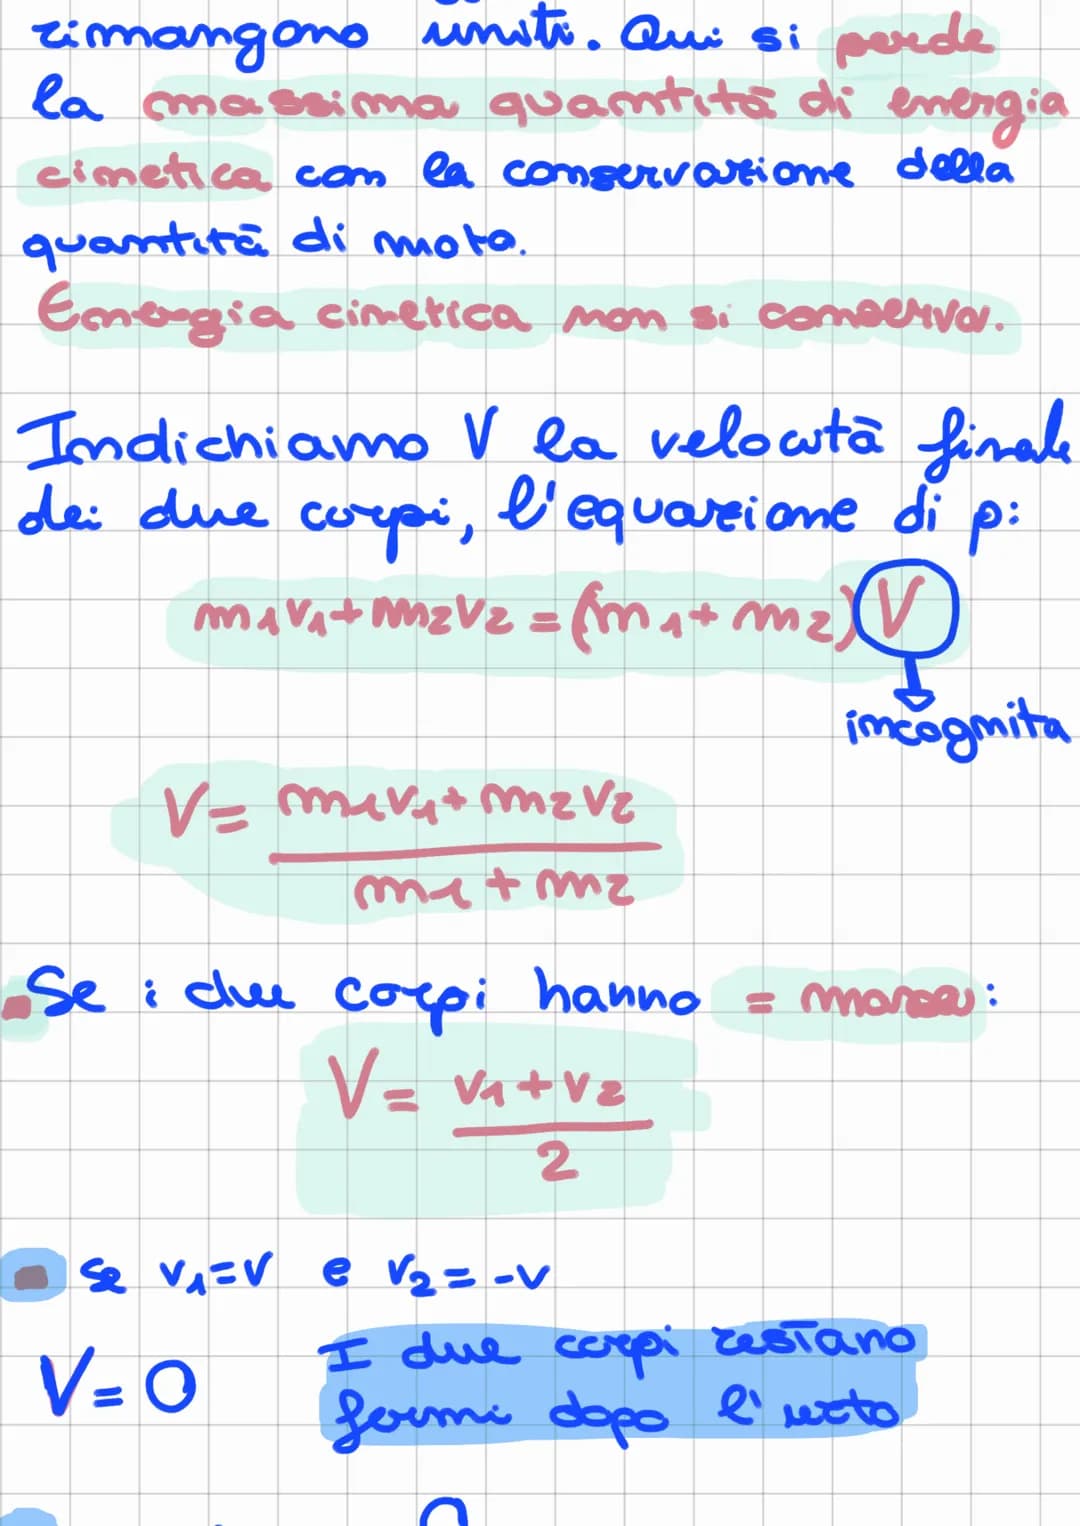 rimangono uniti. Qui si perde
la massima quantità di energia
cinetica con la conservazione della
quantità di moto.
Energia cinetica non si conserva.
Indichiamo V la velocità finale
dei due corpi, l'equazione di p:
m₁v₁+m₂v₂=(m₁+m₂)V
incognita
V= m₁v₁+m₂v₂
m₁+m₂
Se i due corpi hanno = massa:
V= v₁+v₂
2
se v₁=v e v₂=-v
I due corpi restano
V=0
fermi dopo l'urto